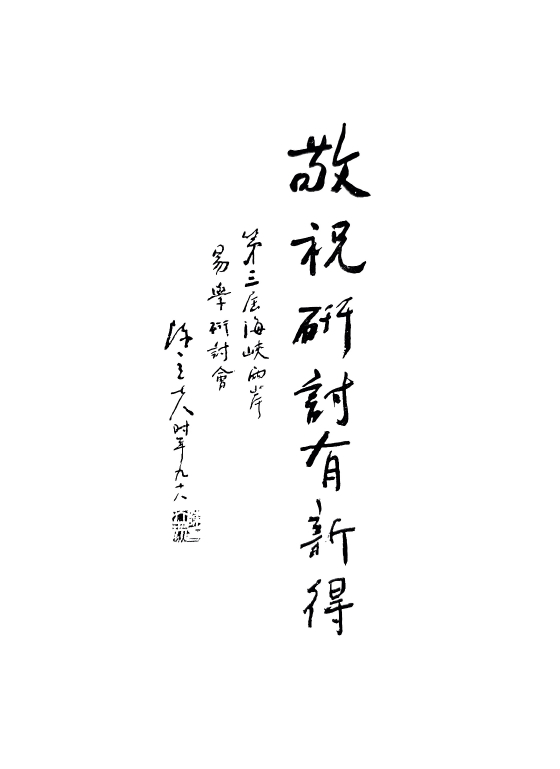 敬祝研討有新得
第三屆海峽兩岸
易學研討會
陳立夫时年九十八